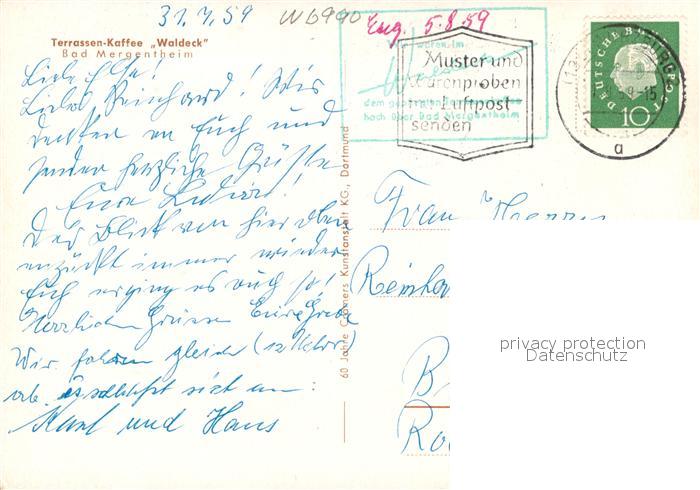 31.7.59 W6990 Eing. 5.8.59
Terrassen-Kaffee „Waldeck"
Bad Mergentheim
Liebe Else!
Lieber Reinhard! Wir
denken an Euch und
senden herzliche Grüße
Eure
Der Blick von hier oben
entzückt immer wieder
Euch erging es auch so!
Herzlichen Grüssen Eure Grete
Wir fahren gleich (12 Uhr)
ab. Es schließt sich an:
Karl und Hans
60 Jahre Cramers Kunstanstalt KG., Dortmund
wir waren im
hoch über Bad Mergentheim
Muster und
Warenproben
mit Luftpost
senden
DEUTSCHE BUNDESPOST
10
a
Frau
Reinha
B
Ro
privacy protection
Datenschutz